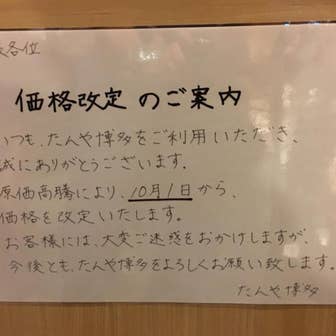 各位
価格改定のご案内
いつも、たんや博多をご利用いただき、
誠にありがとうございます。
原価高騰により、10月1日から、
価格を改定いたします。
お客様には、大変ご迷惑をおかけしますが、
今後とも、たんや博多をよろしくお願い致します
たんや博多